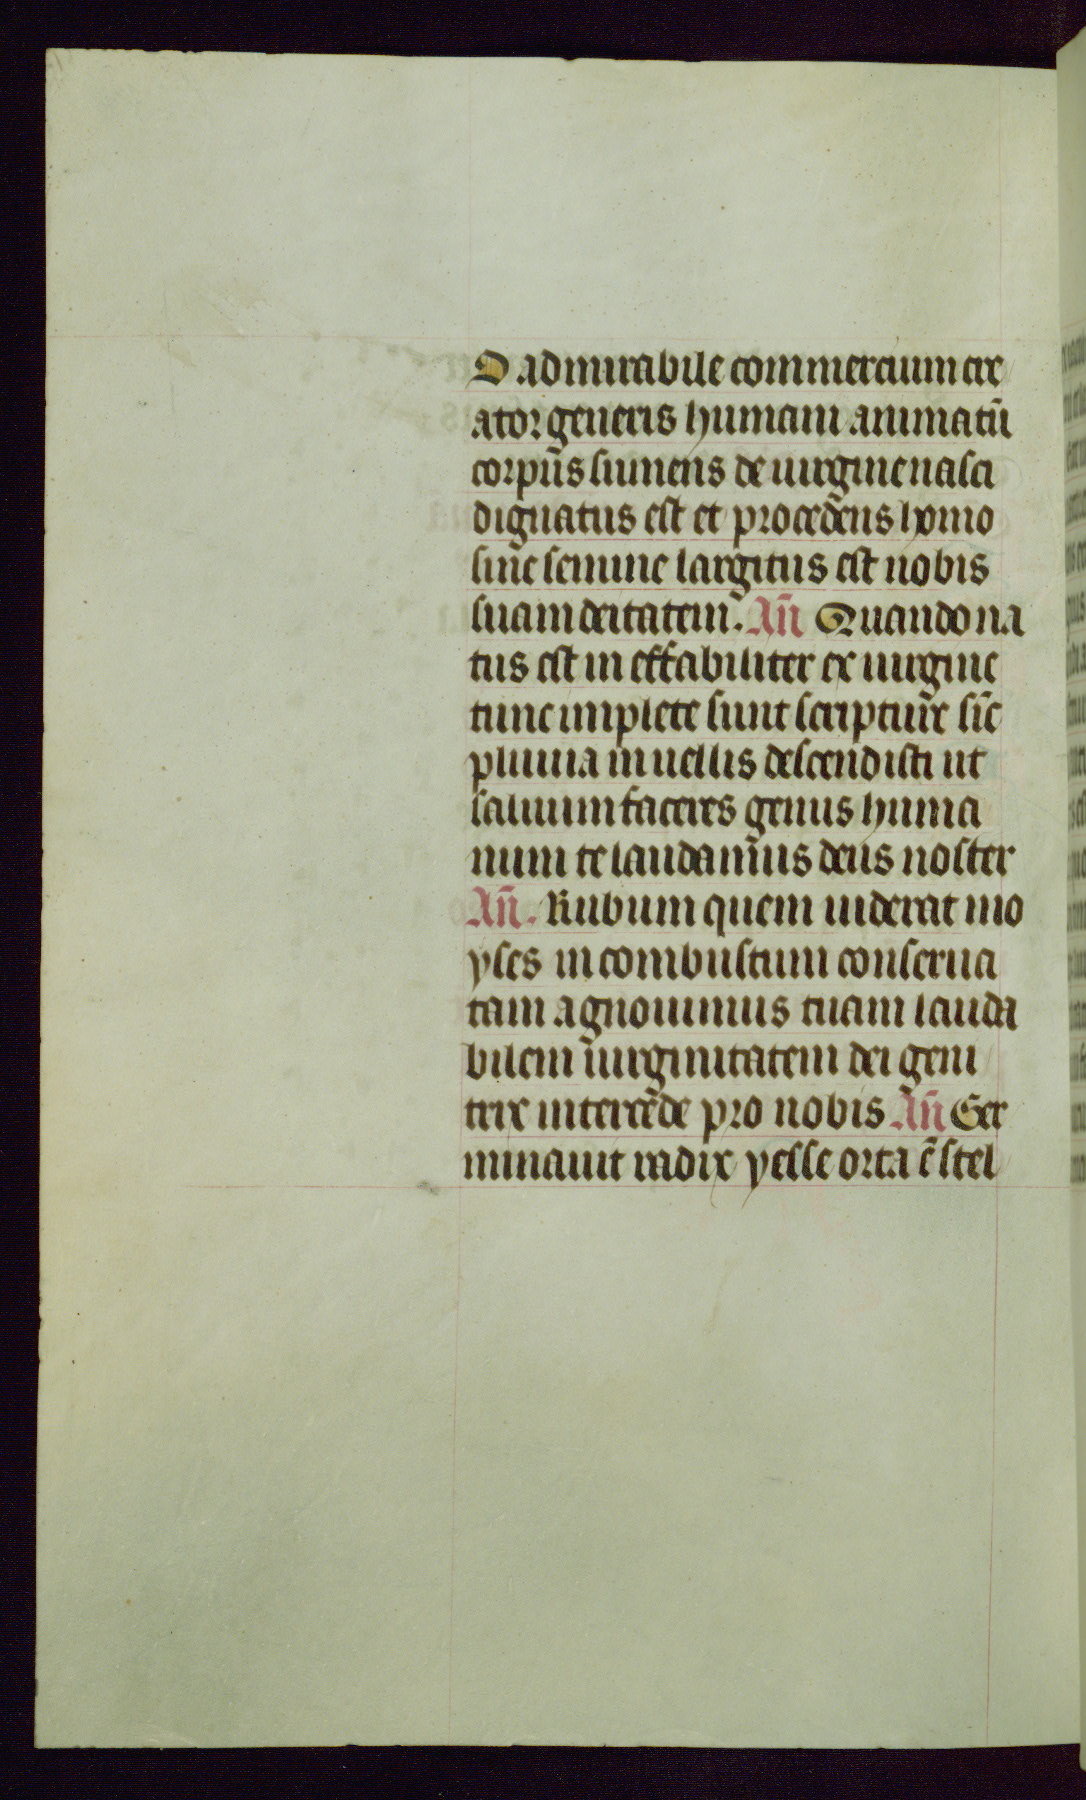 O admirabile commercium cre
ator generis humani animatū
corpus sumens de uirgine nasci
dignatus est et procedens homo
sine semine largitus est nobis
suam deitatem. An̄ Quando na
tus est in effabiliter ex uirgine
tunc implete sunt scripture sic̄
pluuia in uellis descendisti ut
saluum faceres genus huma
num te laudamus deus noster
An̄. Rubum quem uiderat mo
yses incombustum conserua
tam agnouimus tuam lauda
bilem uirginitatem dei geni
trix intercede pro nobis An̄ Ger
minauit radix yesse orta ē stel